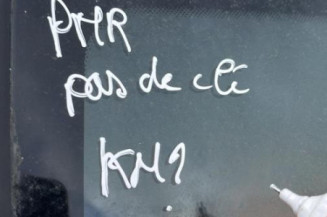 PMR
pas de clé
KM?